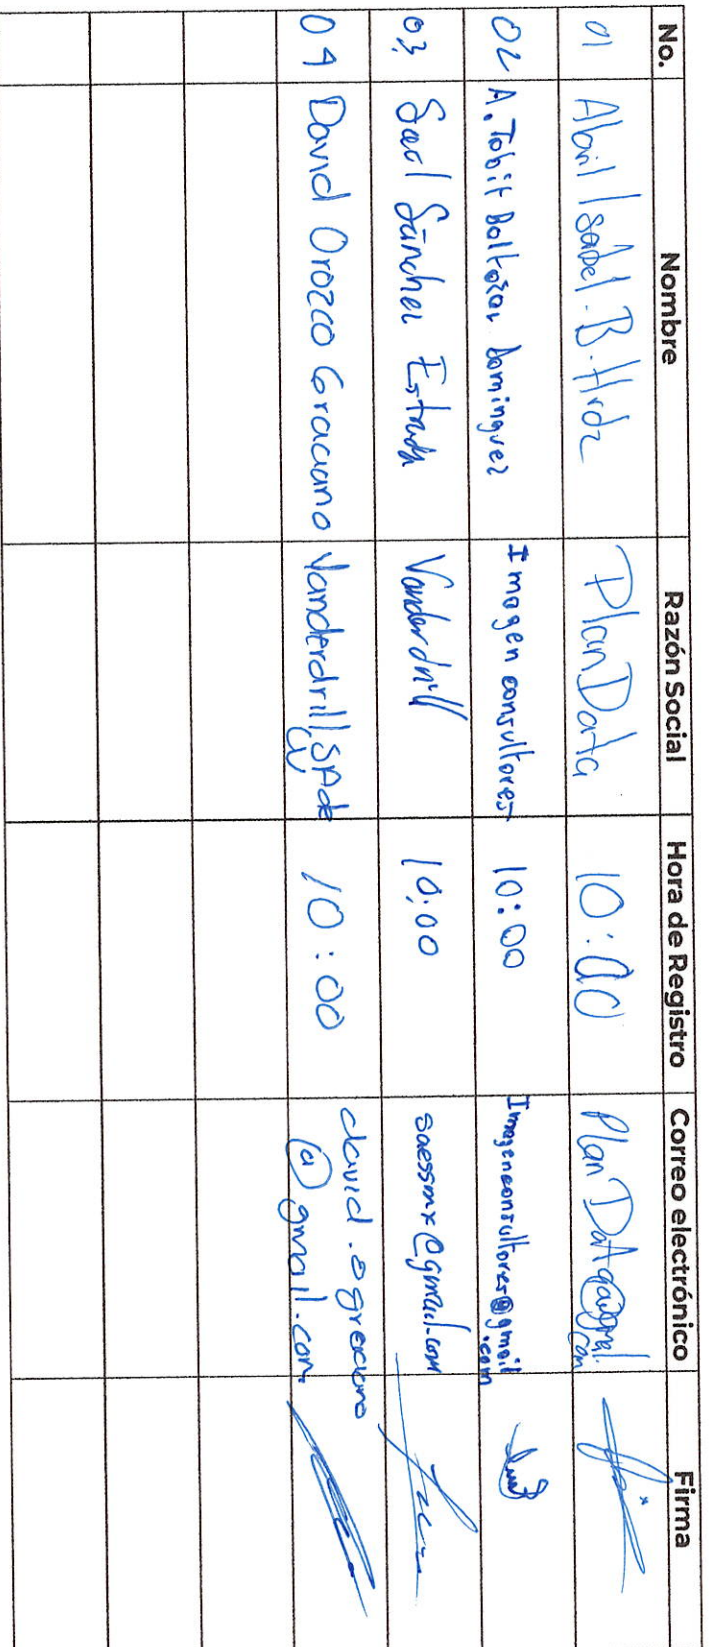 No. Nombre Razón Social Hora de Registro Correo electrónico Firma
01 Abril Isabel. B. Hrdz PlanData 10:00 PlanData@gmail.com
02 A. Tobit Baltazar Dominguez Imagen consultores 10:00 Imagenconsultores@gmail.com
03 Saul Sánchez Estrada Vanderdrill 10:00 saessmx@gmail.com
04 David Orozco Graciano Vanderdrill SA de CV 10:00 david.ograciano
@gmail.com